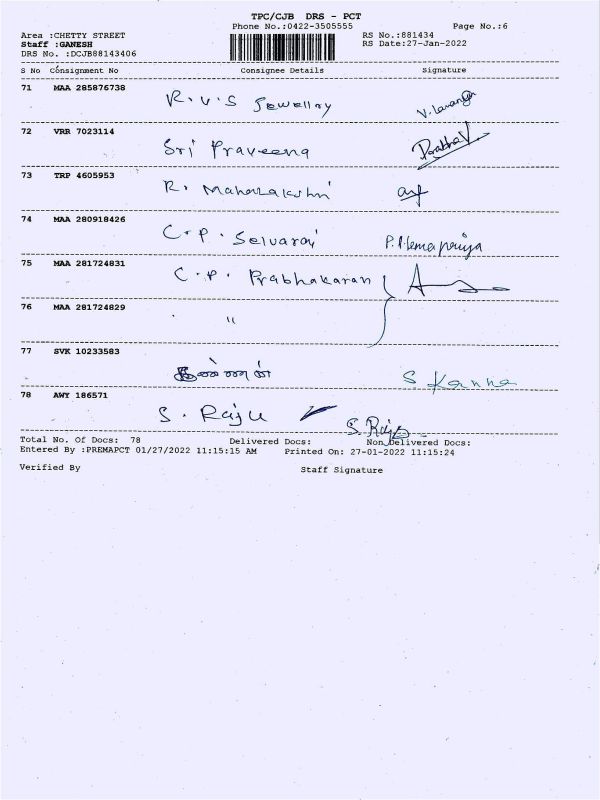 TPC/CJB DRS - PCT
Phone No.:0422-3505555 Page No.:6
Area :CHETTY STREET RS No.:881434
Staff :GANESH RS Date:27-Jan-2022
DRS No. :DCJB88143406
S No Consignment No Consignee Details Signature
71 MAA 285876738 R.V.S Jewellry
72 VRR 7023114 Sri Praveena Prabha V
73 TRP 4605953 R. Mahalakshmi
74 MAA 280918426 C.P. Selvaraj P. Hemapriya
75 MAA 281724831 C.P. Prabhakaran
76 MAA 281724829 "
77 SVK 10233583 கண்ணன் S Kanna
78 AWY 186571 S. Raju S. Raju
Total No. Of Docs: 78 Delivered Docs: Non Delivered Docs:
Entered By :PREMAPCT 01/27/2022 11:15:15 AM Printed On: 27-01-2022 11:15:24
Verified By Staff Signature